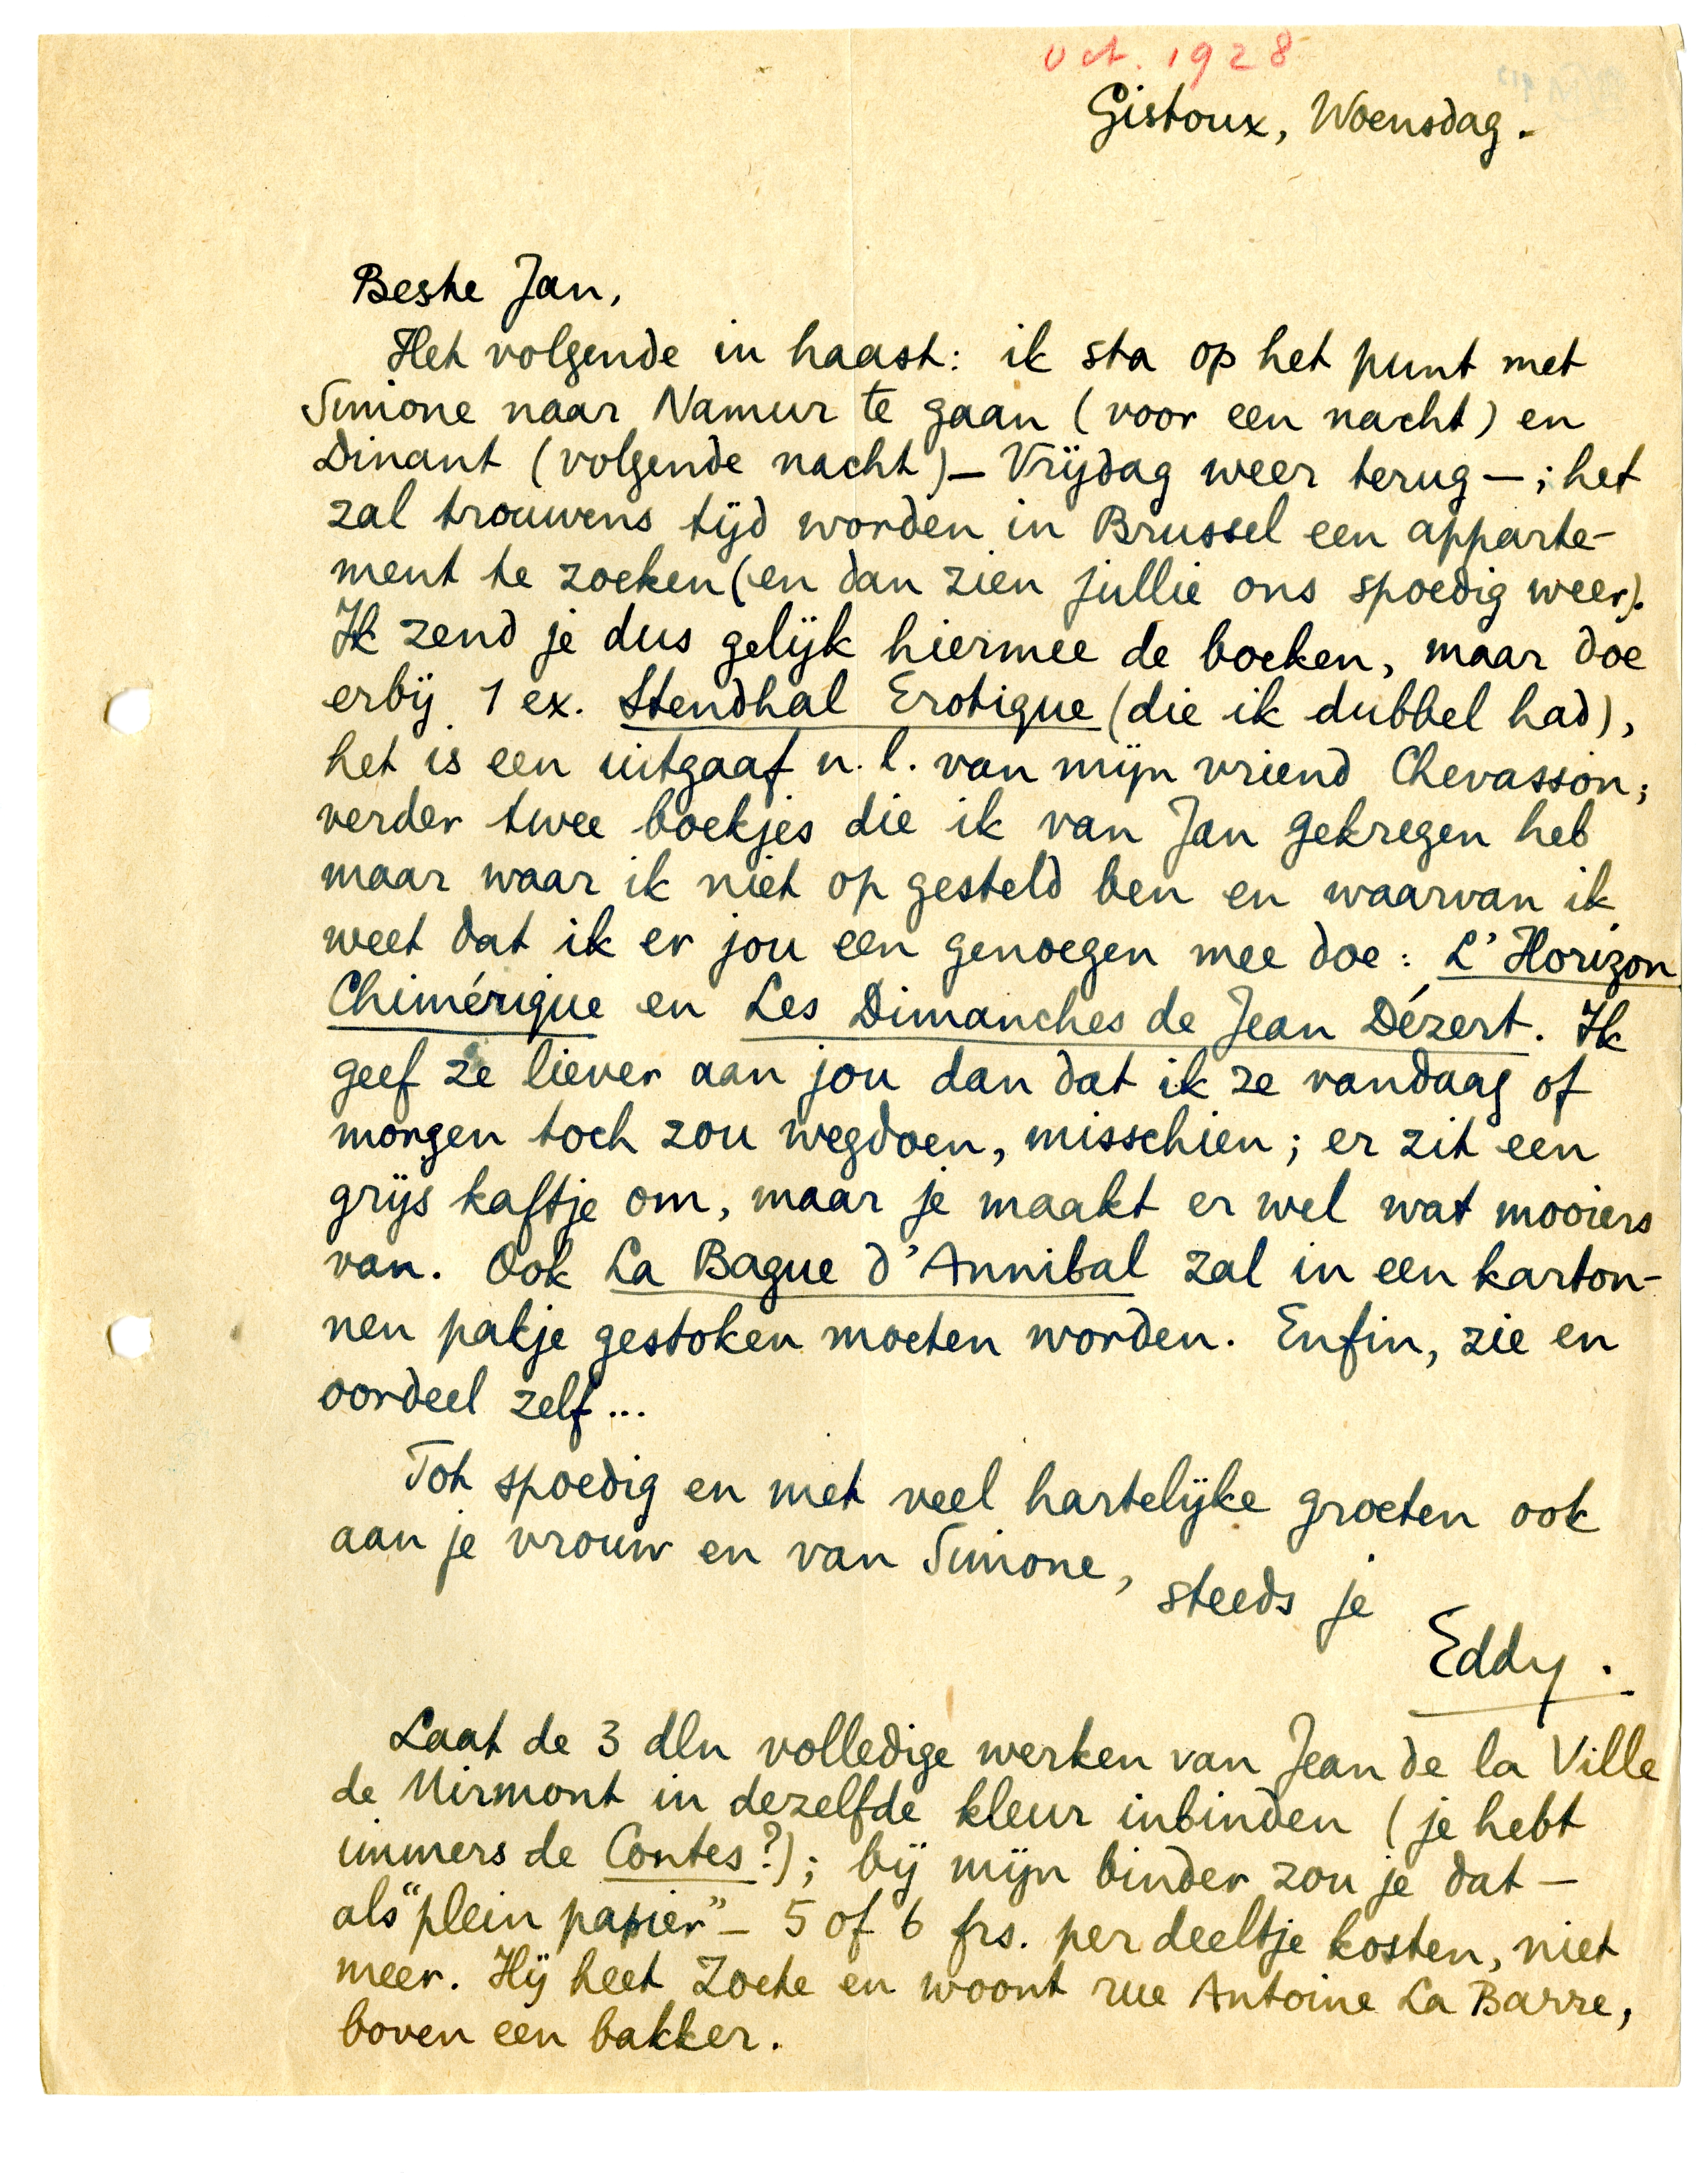 oct. 1928
Gistoux, Woensdag.
Beste Jan,
Het volgende in haast: ik sta op het punt met
Simone naar Namur te gaan (voor een nacht) en
Dinant (volgende nacht) – Vrijdag weer terug –; het
zal trouwens tijd worden in Brussel een apparte-
ment te zoeken (en dan zien jullie ons spoedig weer).
Ik zend je dus gelijk hiermee de boeken, maar doe
erbij 1 ex. Stendhal Erotique (die ik dubbel had),
het is een uitgaaf n.l. van mijn vriend Chevasson;
verder twee boekjes die ik van Jan gekregen heb
maar waar ik niet op gesteld ben en waarvan ik
weet dat ik er jou een genoegen mee doe: L'Horizon
Chimérique en Les Dimanches de Jean Dézert. Ik
geef ze liever aan jou dan dat ik ze vandaag of
morgen toch zou wegdoen, misschien; er zit een
grijs kaftje om, maar je maakt er wel wat mooiers
van. Ook La Bague d'Annibal zal in een karton-
nen pakje gestoken moeten worden. Enfin, zie en
oordeel zelf...
Tot spoedig en met veel hartelijke groeten ook
aan je vrouw en van Simone,
steeds je
Eddy.
Laat de 3 dln volledige werken van Jean de la Ville
de Mirmont in dezelfde kleur inbinden (je hebt
immers de Contes?); bij mijn binder zou je dat –
als "plein papier" – 5 of 6 frs. per deeltje kosten, niet
meer. Hij heet Zoete en woont rue Antoine La Barre,
boven een bakker.